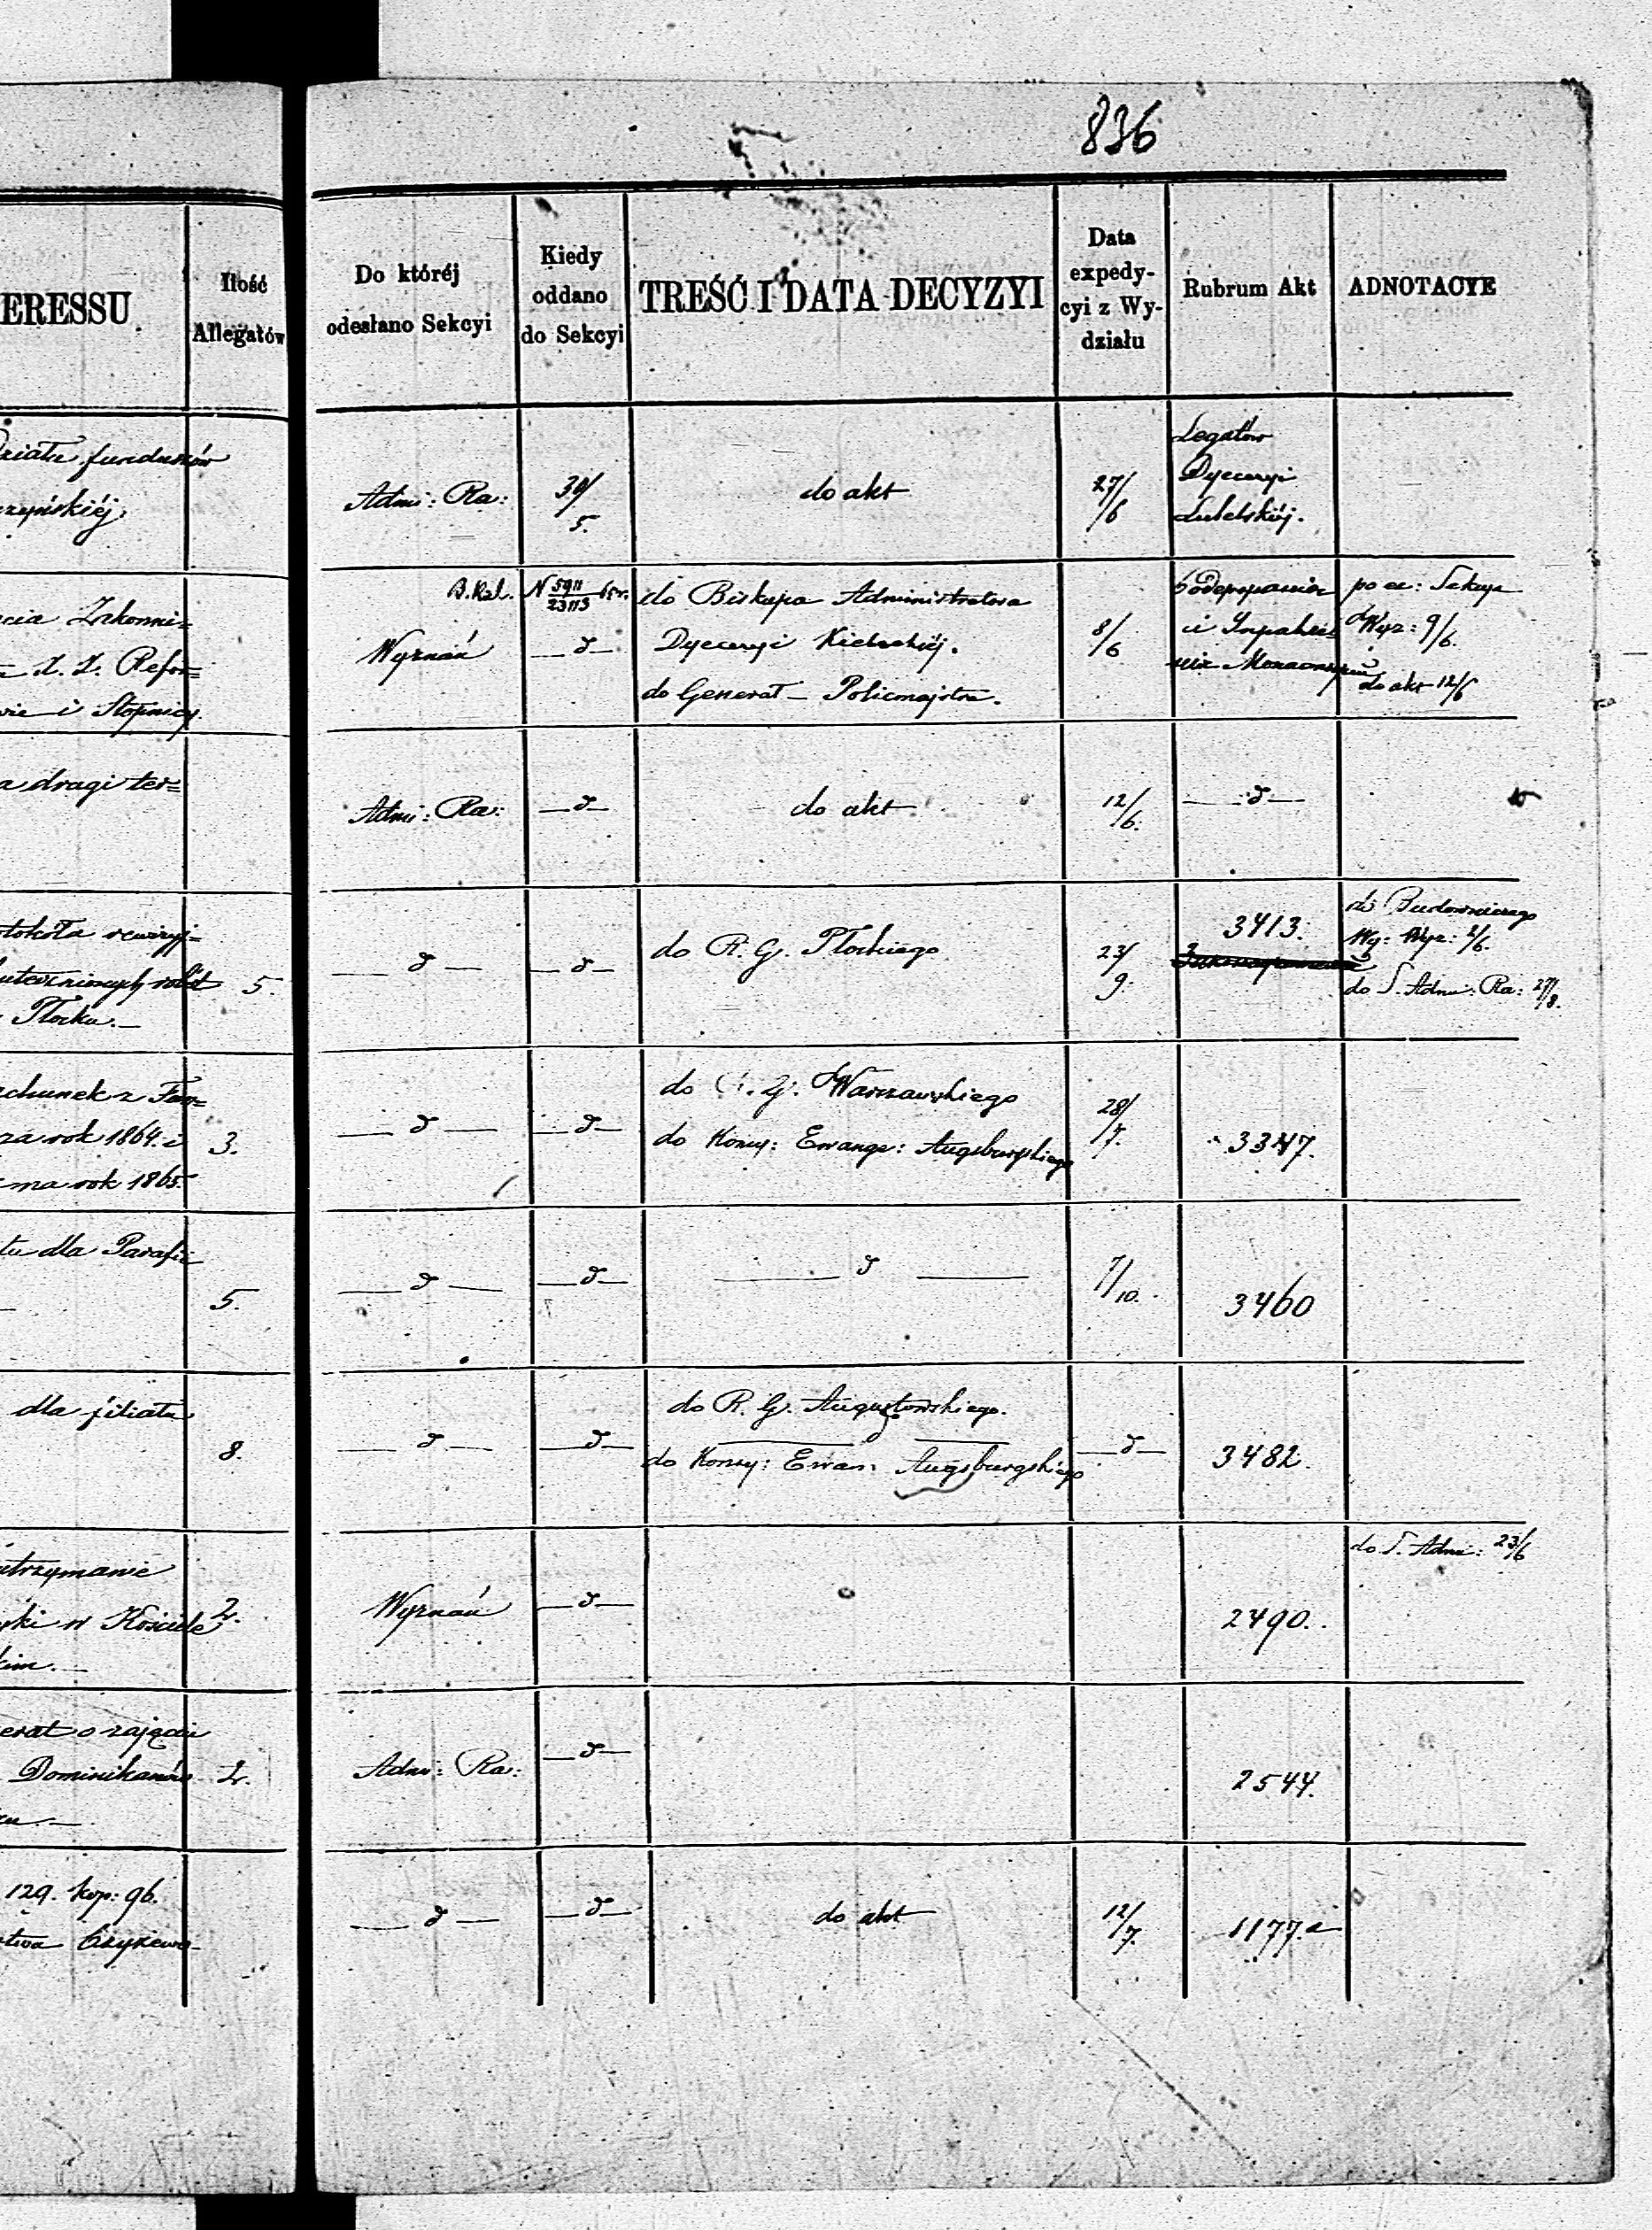 836
ERESSU
Ilość
Allegatów
Do któréj
odesłano Sekcyi
Kiedy
oddano
do Sekcyi
TREŚĆ I DATA DECYZYI
Data
expedy-
cyi z Wy-
działu
Rubrum Akt
ADNOTACYE
działu funduszów
rzyńskiéj
Admi: Ra:
30/5.
do akt
27/6
Legatów
Dyecezyi
Lubelskiéj.
cia Zakonni=
Z. Z. Refor=
wie i Stopnicy.
B. Kal.
Wyznań
N 5911/23113 65r.
— d —
do Biskupa Administratora
Dyecezyi Kieleckiéj.
do Generał - Policmajstra.
8/6
po ee: Sekcya
Wyz: 9/6.
do akt 12/6
a drugi ter=
Admi: Ra:
— d —
do akt
12/6.
— d —
tokóła rewizyj=
utecznionych robót
Płocku. —
5.
— d —
— d —
do R. G. Płockiego
23/9.
3413.
do Budowniczego
Wy: Wyz: 2/6.
do S. Admi: Ra: 27/8.
chunek z Fun=
za rok 1864. i
na rok 1865.
3.
— d —
— d —
do R. G. Warszawskiego
do Konsy: Ewange: Augsburgskiego
28/7.
3347.
tu dla Parafii
5.
— d —
— d —
— d —
7/10.
3460
dla filiału
8.
— d —
— d —
do R. G. Augustowskiego.
— d —
do Konsy: Ewan: Augsburgskiego
— d —
3482.
utrzymanie
ki w Kościele
kim. —
2.
Wyznań
— d —
2490.
do S. Admi: 23/6
erat o zajęciu
Dominikanów
2.
Admi: Ra:
— d —
2544.
129. kop: 96.
stwa Czyżew-
— d —
— d —
do akt
12/7.
1177.a